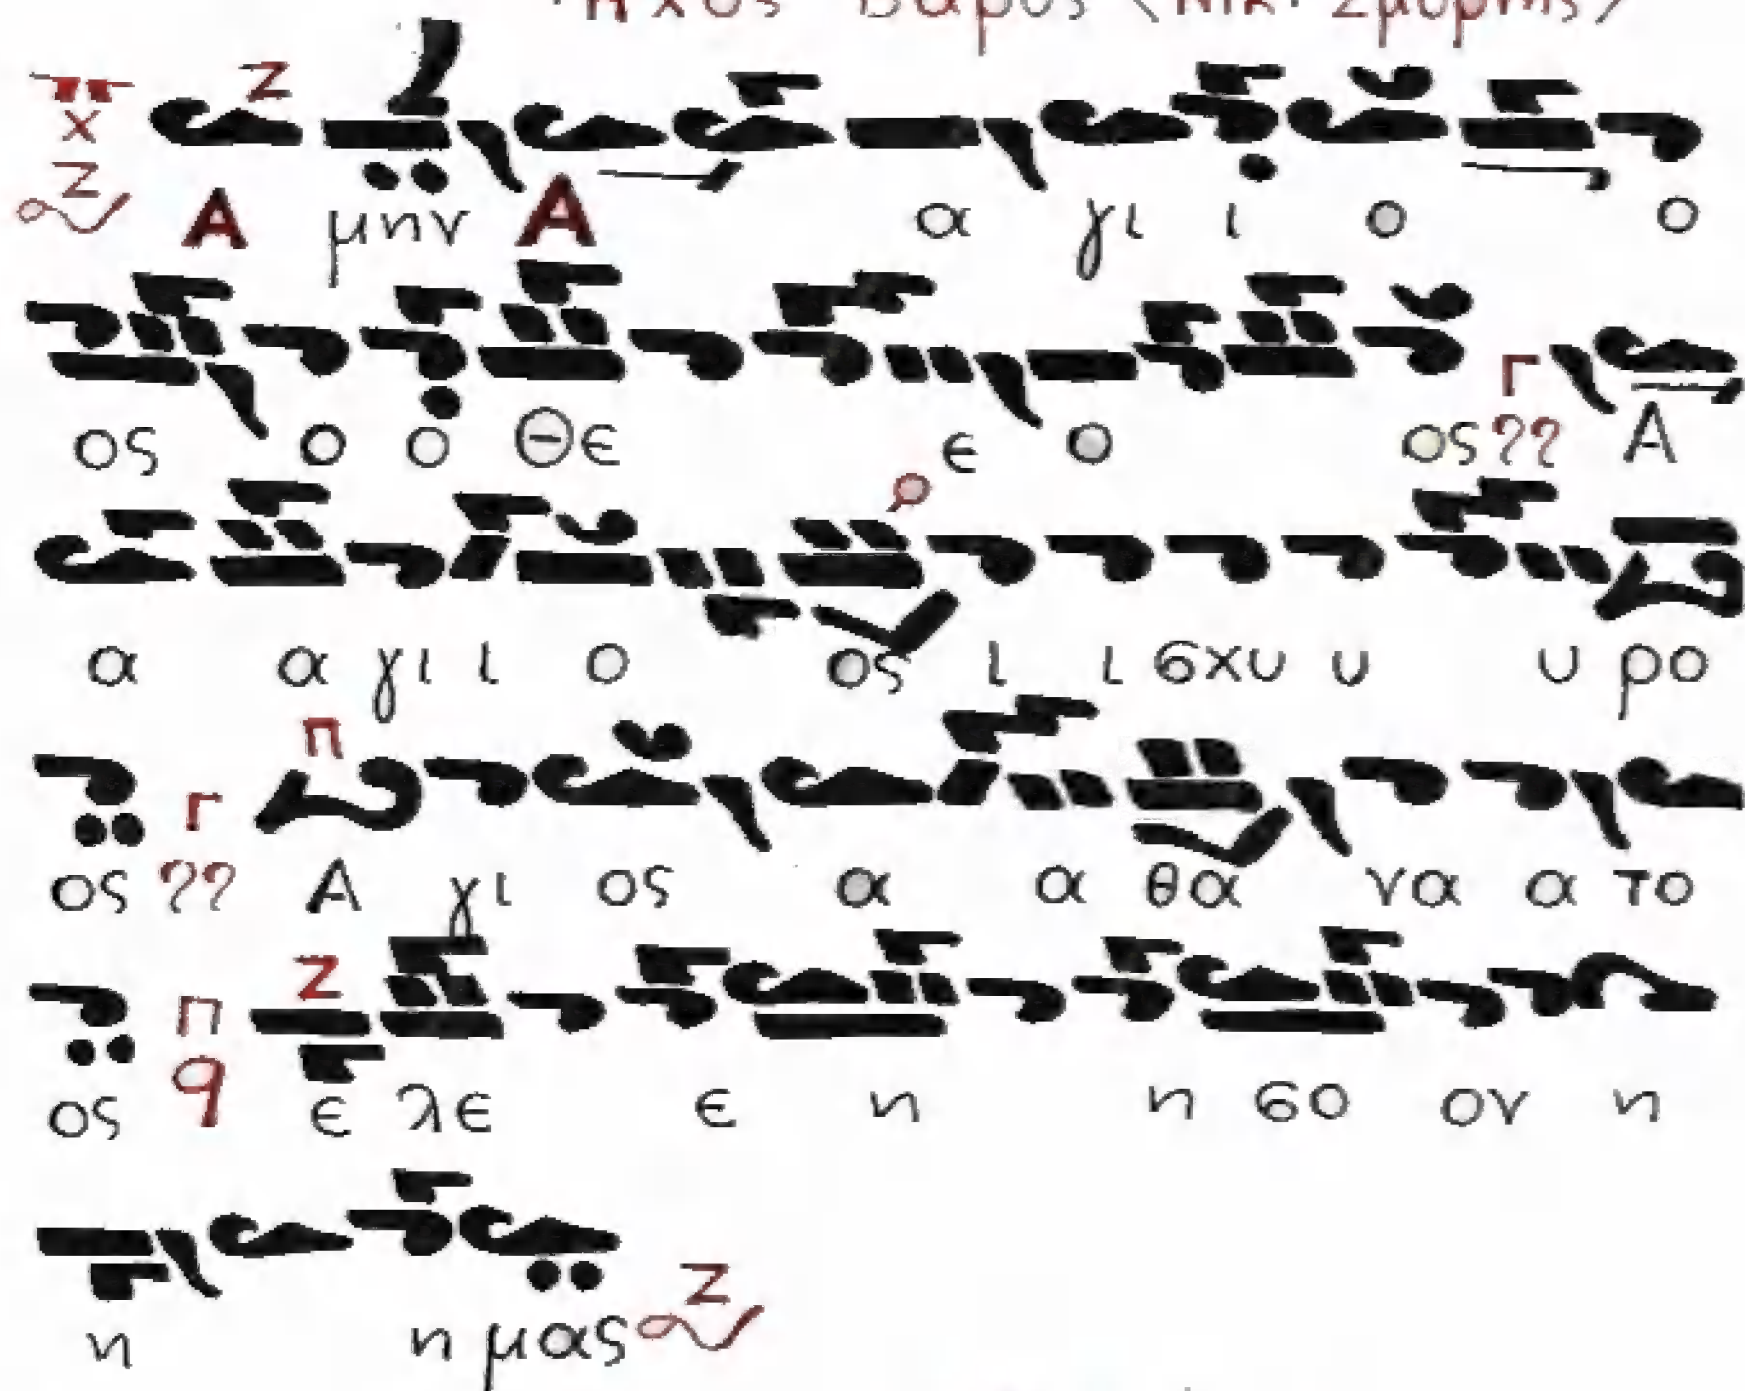 Ἦχος Βαρύς (Νικ. Σμύρνης)
Α μην Α α γι ι ο ο
ος ο ο Θε ε ο ος Α
α α γι ι ο ος ι ι σχυ υ υ ρο
ος Α γι ος α α θα να α το
ος ε λε ε η η σο ον η
η η μας